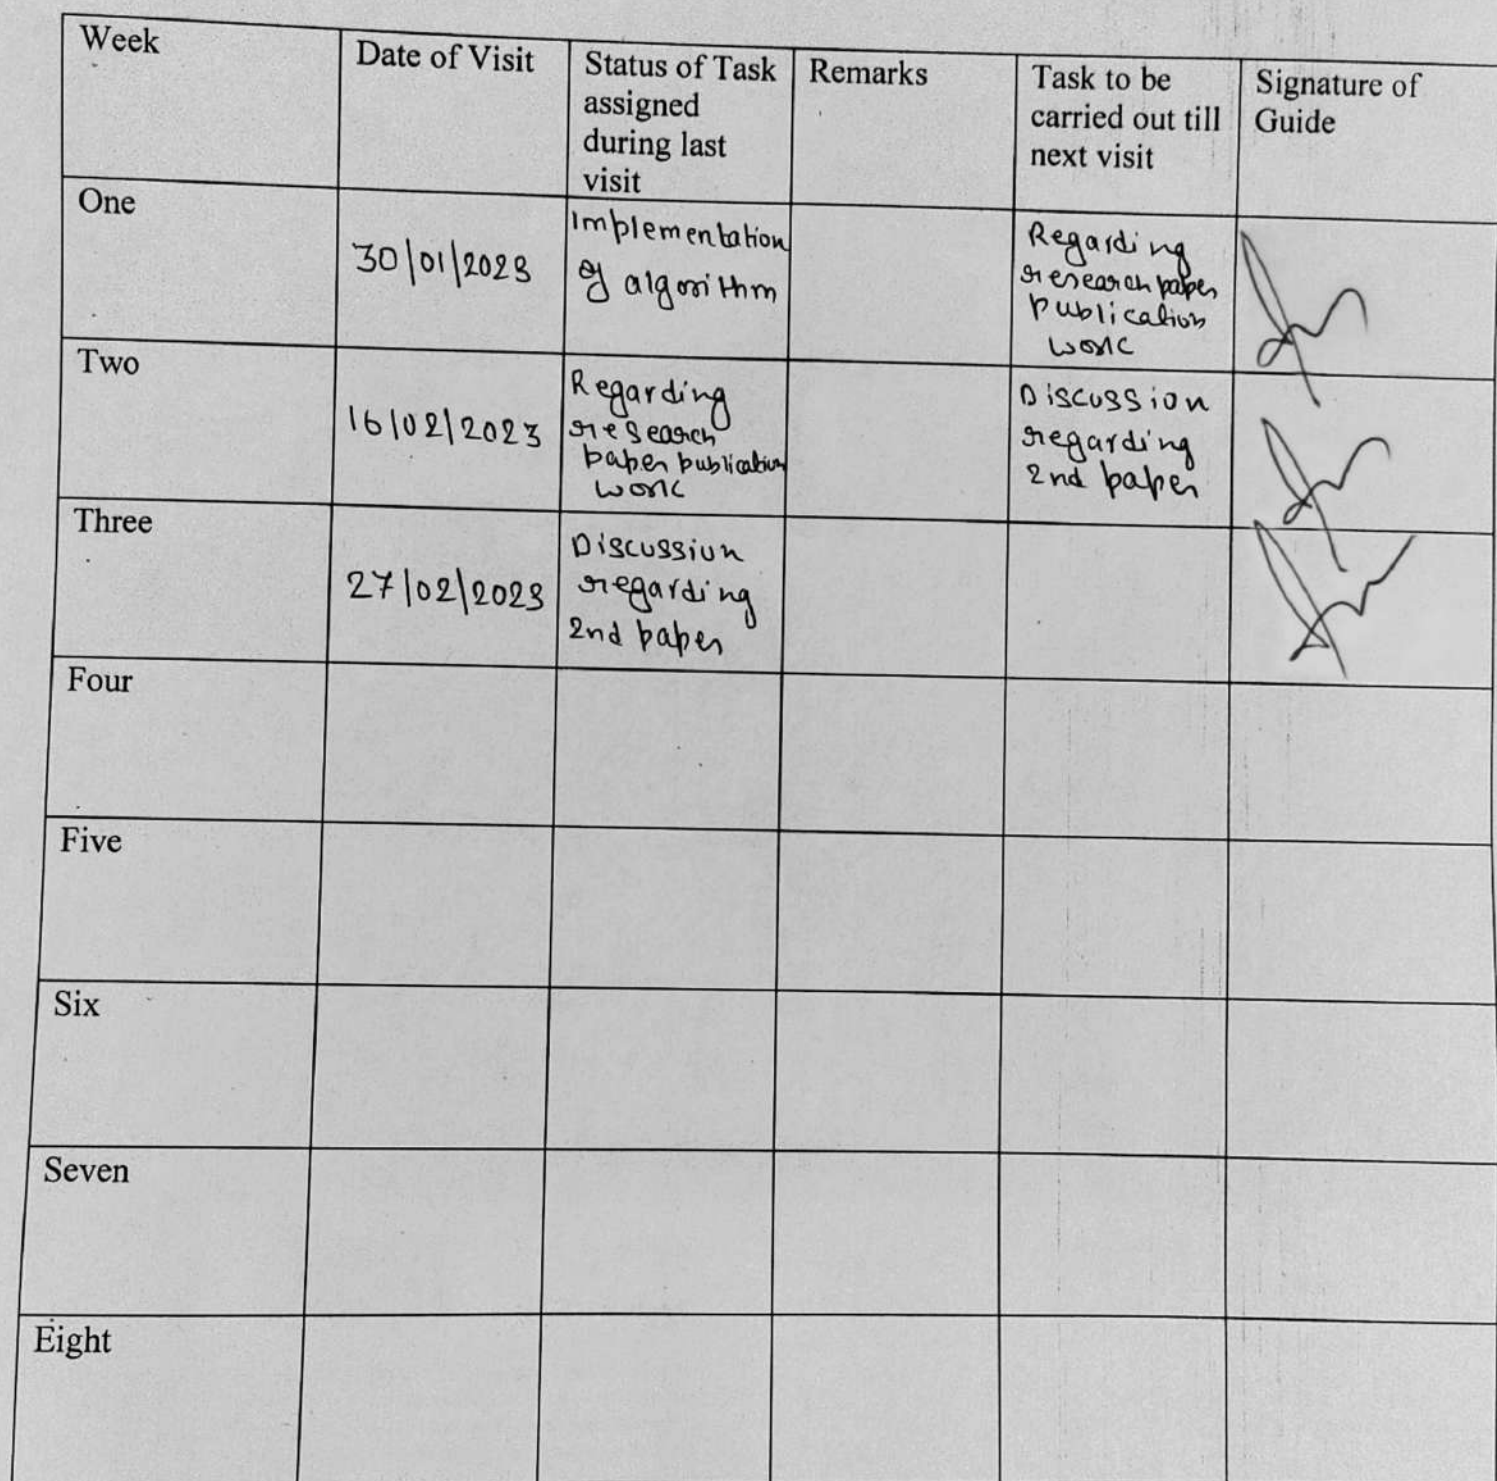 Week
Date of Visit
Status of Task
assigned
during last
visit
Remarks
Task to be
carried out till
next visit
Signature of
Guide
One
30/01/2023
Implementation
of algorithm
Regarding
research paper
publication
work
Two
16/02/2023
Regarding
research
paper publication
work
Discussion
regarding
2nd paper
Three
27/02/2023
Discussion
regarding
2nd paper
Four
Five
Six
Seven
Eight